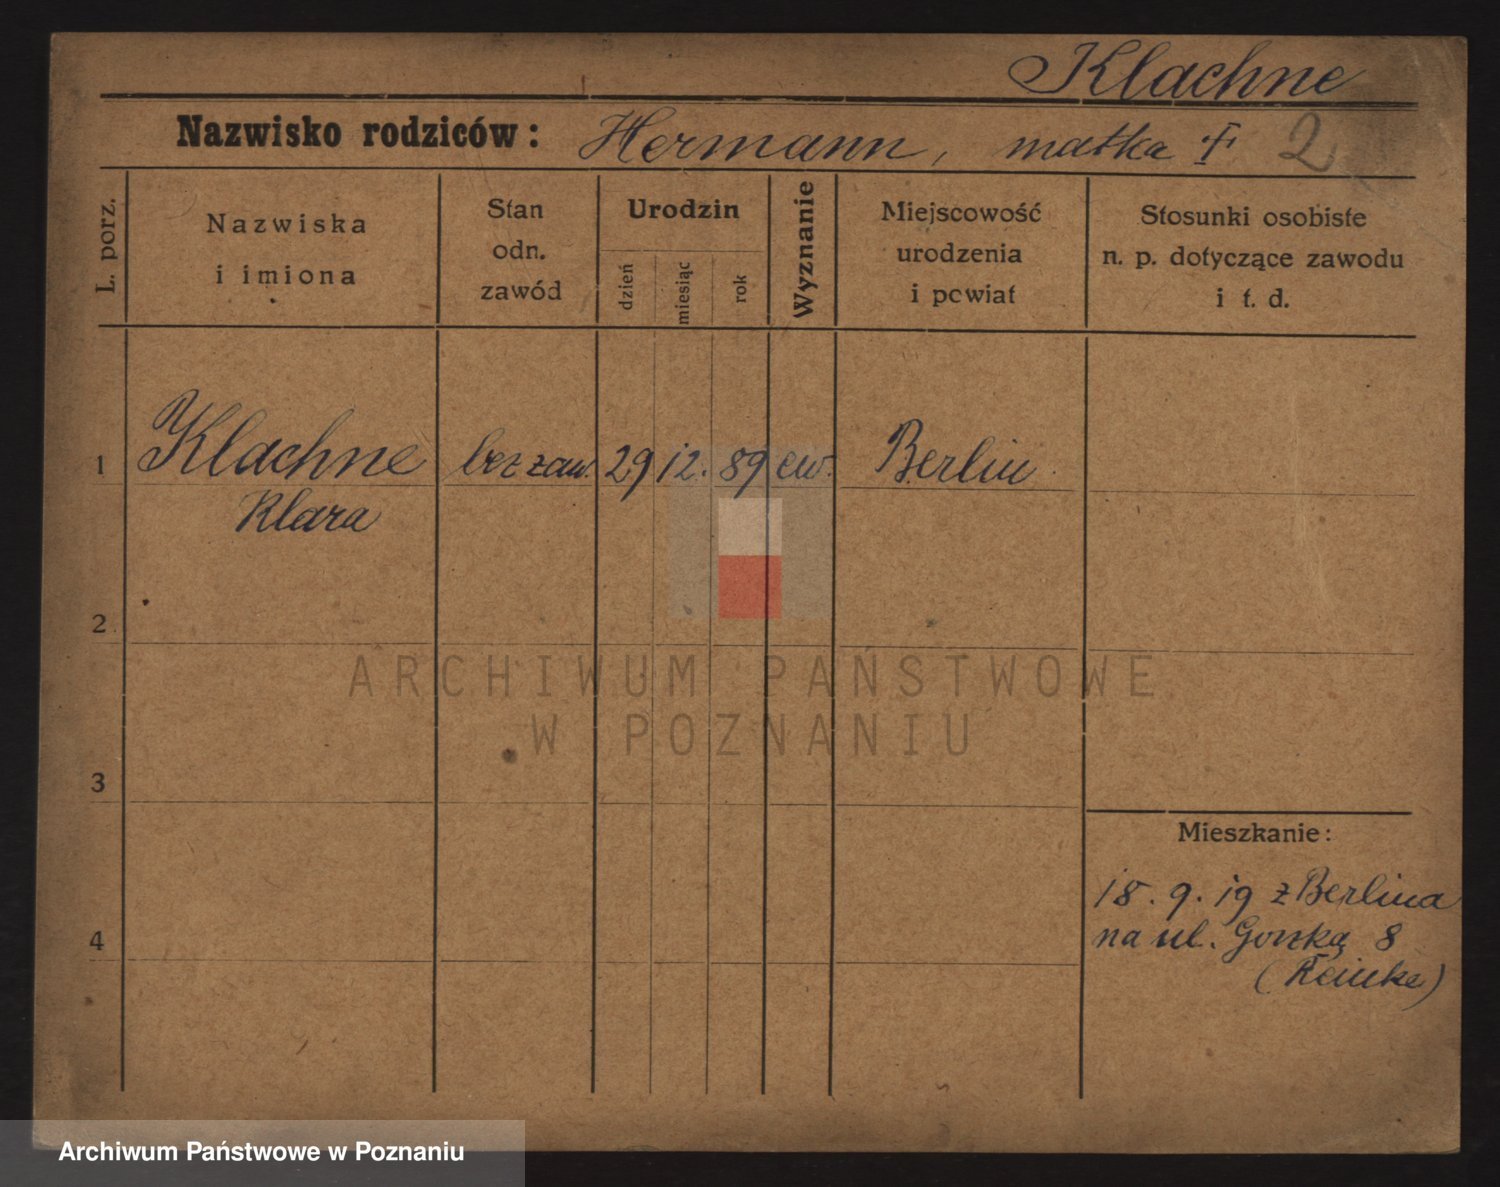 Klachne
Nazwisko rodziców: Hermann, matka † 2
L. porz.
Nazwiska
i imiona
Stan
odn.
zawód
Urodzin
dzień
miesiąc
rok
Wyznanie
Miejscowość
urodzenia
i powiat
Stosunki osobiste
n. p. dotyczące zawodu
i t. d.
1 Klachne bez zaw. 29 12. 89 ew. Berlin
Klara
2
3
4
Mieszkanie:
18. 9. 19 z Berlina
na ul. Gorzką 8
(Reinke)
ARCHIWUM PAŃSTWOWE
W POZNANIU
Archiwum Państwowe w Poznaniu